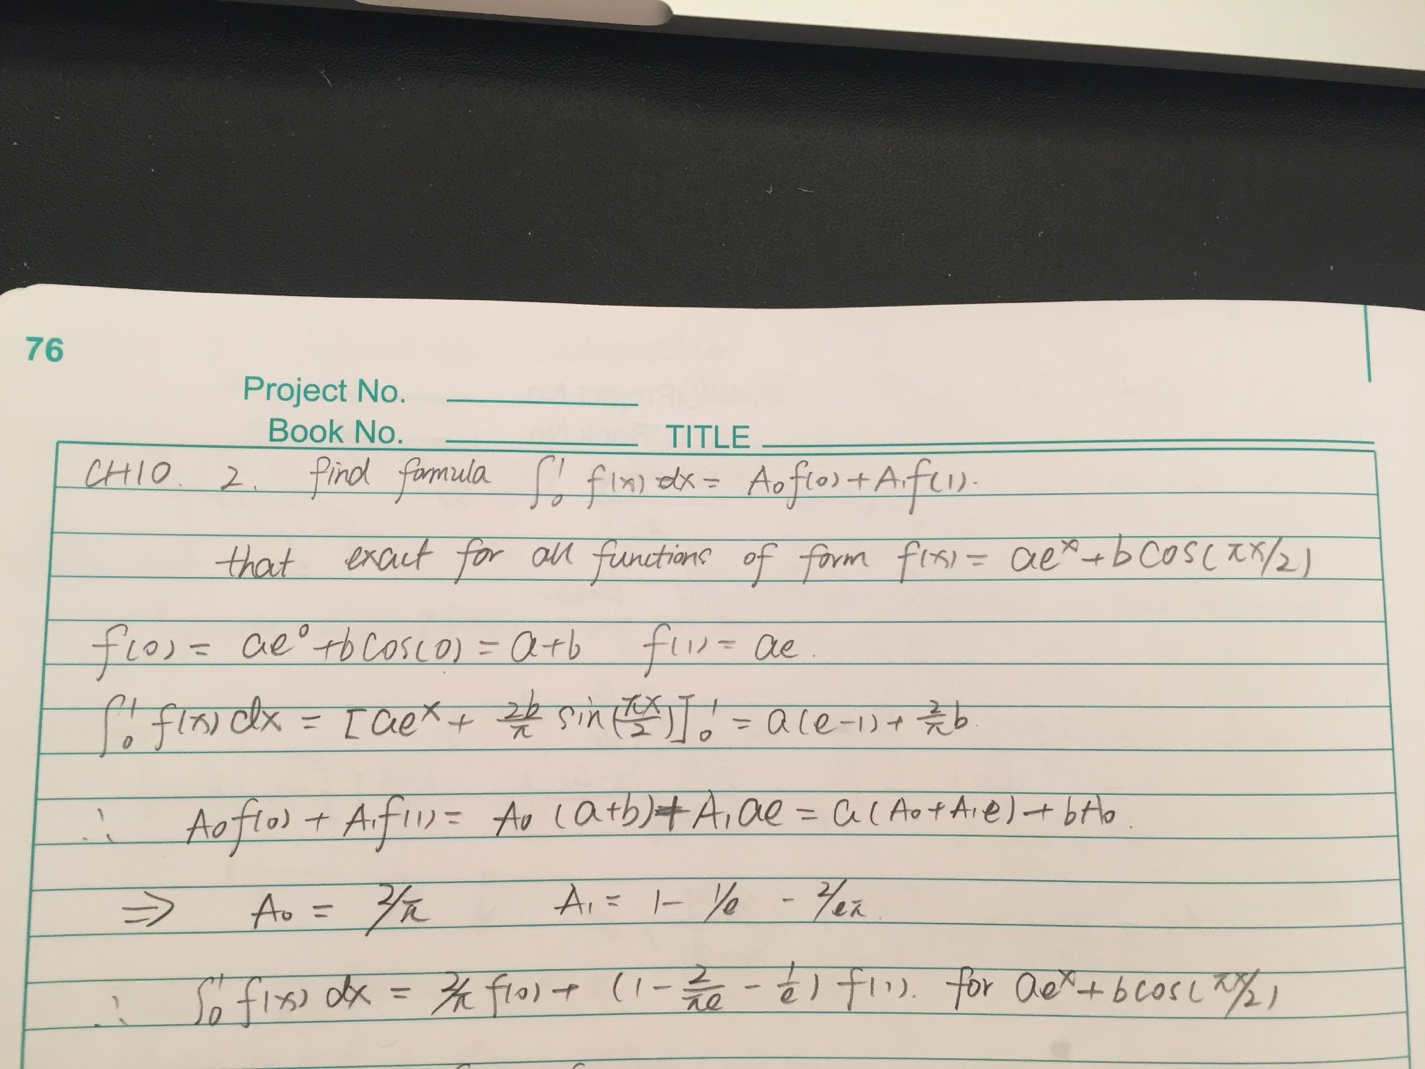 76
Project No.
Book No. TITLE
CH10. 2. find formula ∫₀¹ f(x) dx = A₀f(0) + A₁f(1).
that exact for all functions of form f(x) = aeˣ + b cos(πx/2)
f(0) = ae⁰ + b cos(0) = a+b f(1) = ae.
∫₀¹ f(x) dx = [aeˣ + 2b/π sin(πx/2)]₀¹ = a(e-1) + 2/π b.
∴ A₀f(0) + A₁f(1) = A₀(a+b) + A₁ae = a(A₀+A₁e) + bA₀.
⇒ A₀ = 2/π A₁ = 1 - 1/e - 2/eπ.
∴ ∫₀¹ f(x) dx = 2/π f(0) + (1 - 2/πe - 1/e) f(1). for aeˣ + b cos(πx/2)